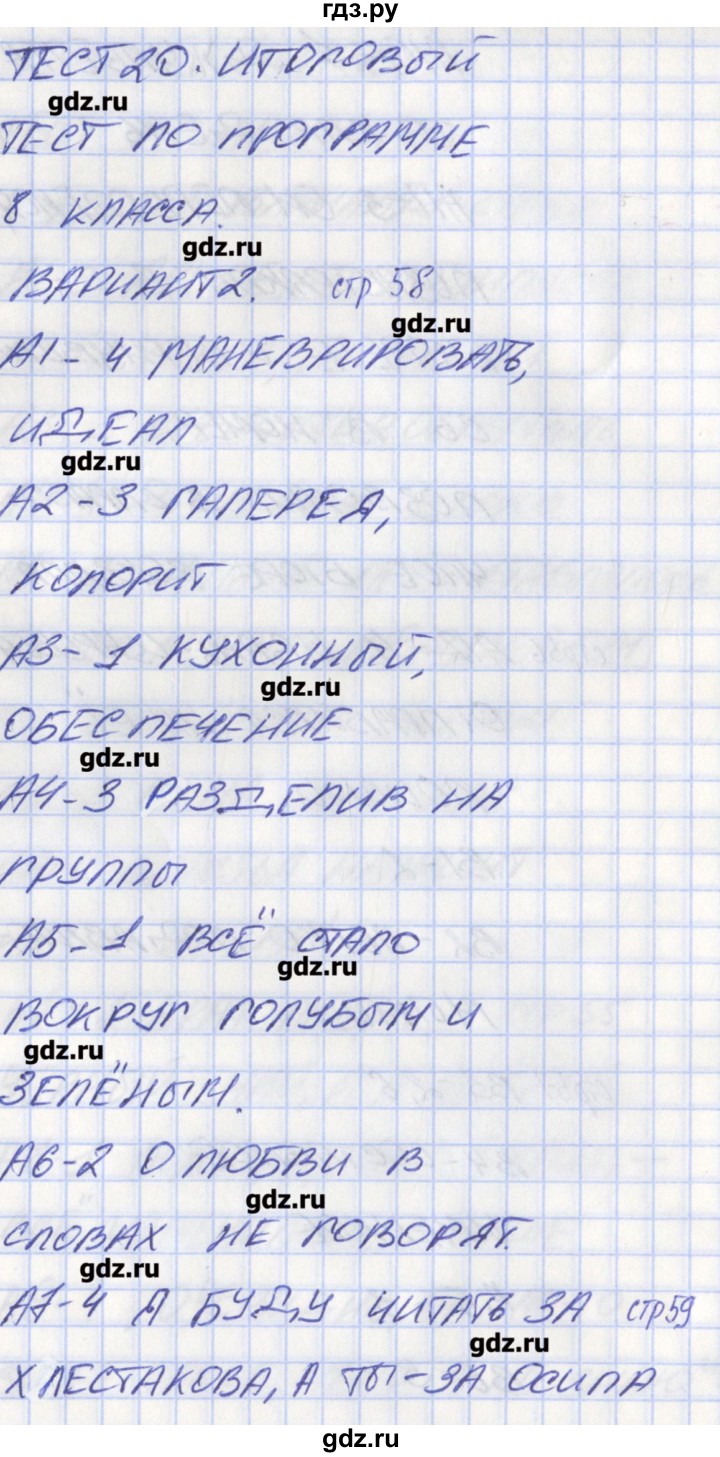 гдз.ру
ТЕСТ 20. ИТОГОВЫЙ
gdz.ru
ТЕСТ ПО ПРОГРАММЕ
8 КЛАССА.
gdz.ru
ВАРИАНТ 2. стр 58
gdz.ru
А1-4 МАНЕВРИРОВАТЬ,
ИДЕАЛ
gdz.ru
А2-3 ГАЛЕРЕЯ,
КОЛОРИТ
А3-1 КУХОННЫЙ,
gdz.ru
ОБЕСПЕЧЕНИЕ
gdz.ru
А4-3 РАЗДЕЛИВ НА
ГРУППЫ
А5-1 ВСЁ СТАЛО
gdz.ru
ВОКРУГ ГОЛУБЫМ И
gdz.ru
ЗЕЛЁНЫМ.
А6-2 О ЛЮБВИ В
gdz.ru
СЛОВАХ НЕ ГОВОРЯТ.
gdz.ru
А7-4 Я БУДУ ЧИТАТЬ ЗА стр 59
gdz.ru
ХЛЕСТАКОВА, А ТЫ-ЗА ОСИПА
gdz.ru